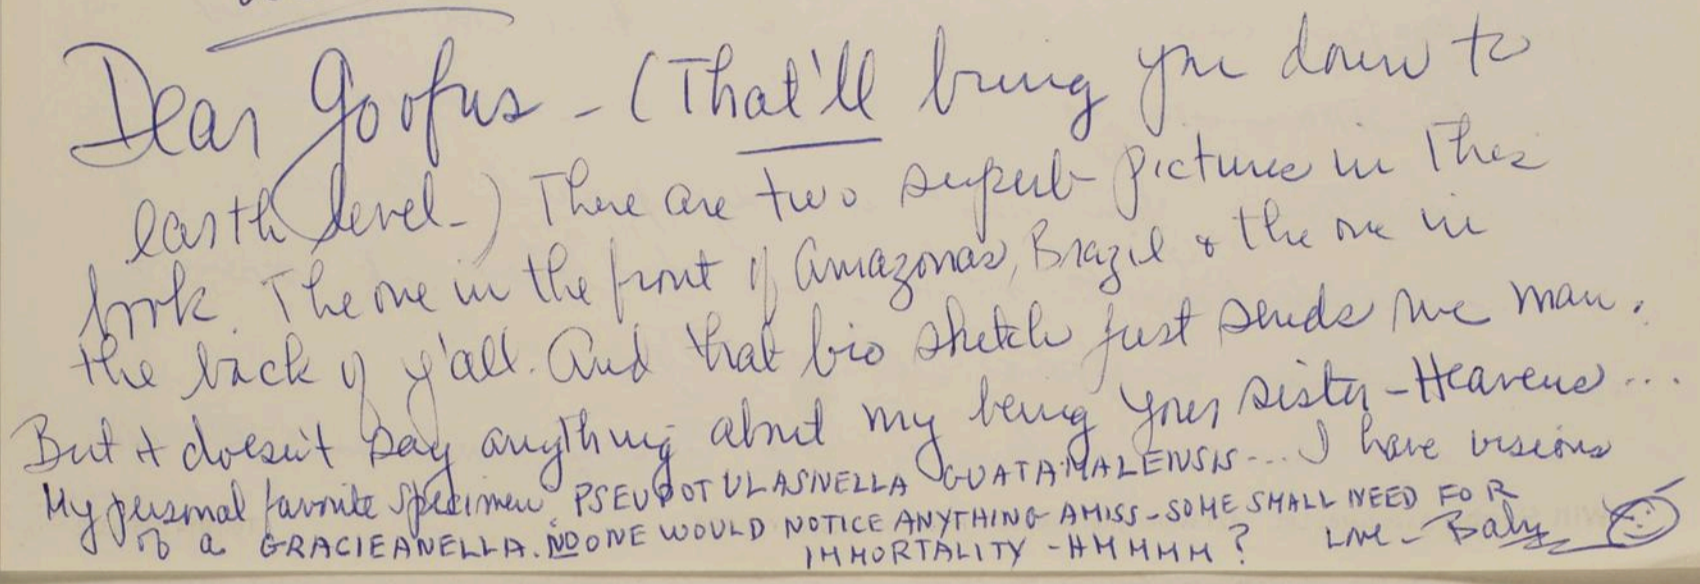 Dear Goofus - (That'll bring you down to
earth level.) There are two superb pictures in this
book. The one in the front of Amazonas, Brazil & the one in
the back of y'all. And that bio sketch just sends me man.
But it doesn't say anything about my being your sister - Heavens...
My personal favorite specimen. PSEUDOTULASNELLA GUATAMALENSIS... I have visions
of a GRACIEANELLA. NO ONE WOULD NOTICE ANYTHING AMISS - SOME SMALL NEED FOR
IMMORTALITY - HMMMM? Love - Baby